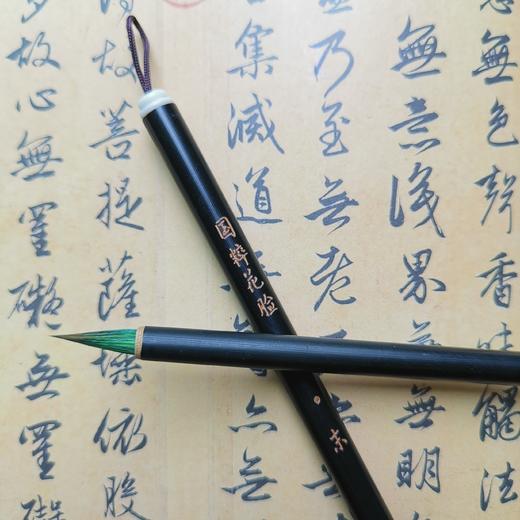 意無色聲香味觸法
無意識界無無明
乃至無老
集滅道
亦無
得故菩提薩埵依般
多故心無罣礙無罣礙
国粹花脸·末